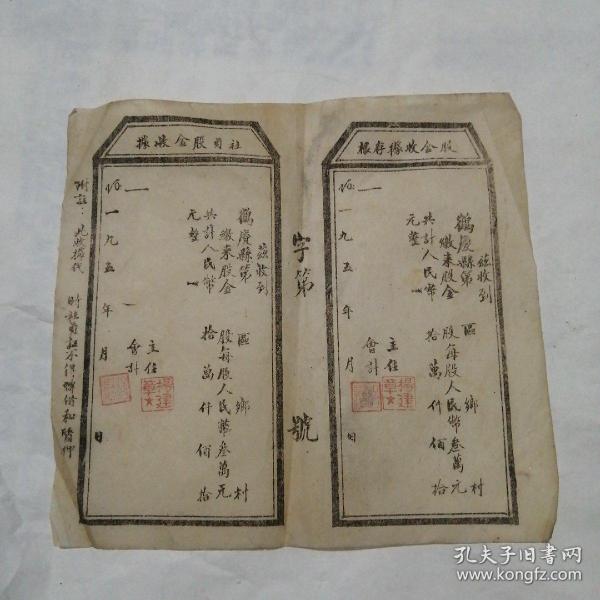 股金收據存根
茲收到
鶴慶縣第 區 鄉 村
繳來股金 股每股人民幣叁萬元
共計人民幣 拾萬仟佰拾
元整
主任
會計
楊建章
一九五 年 月 日
字第 號
社員股金收據
茲收到
鶴慶縣第 區 鄉 村
繳來股金 股每股人民幣叁萬元
共計人民幣 拾萬仟佰拾
元整
主任
會計
楊建章
一九五 年 月 日
附註：此收據代
孔夫子旧书网
www.kongfz.com